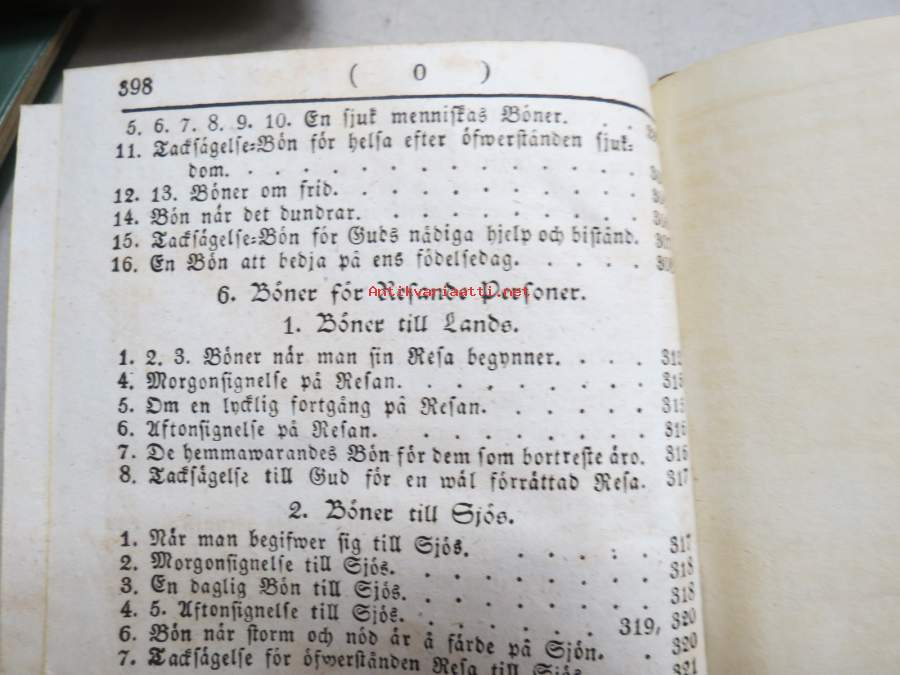 398
( O )
5. 6. 7. 8. 9. 10. En sjuk menniskas Böner. . .
11. Tacksägelse-Bön för helsa efter öfwerstånden sjuk-
dom. . . . . . . . . . . . . . .
12. 13. Böner om frid. . . . . . . . . . . .
14. Bön når det dundrar. . . . . . . . . . .
15. Tacksägelse-Bön för Guds nådiga hjelp och bistånd.
16. En Bön att bedja på ens födelsedag. . . . . .
6. Böner för Resande Personer.
Antikvariaatti.net
1. Böner till Lands.
1. 2. 3. Böner når man sin Resa begynner. . . .
4. Morgonsignelse på Resan. . . . . . . . . 315
5. Om en lycklig fortgång på Resan. . . . . . 315
6. Aftonsignelse på Resan. . . . . . . . . 316
7. De hemmawarandes Bön för dem som bortreste äro. 316
8. Tacksägelse till Gud för en wäl förrättad Resa. 317
2. Böner till Sjös.
1. Når man begifwer sig till Sjös. . . . . . 317
2. Morgonsignelse till Sjös. . . . . . . . 318
3. En daglig Bön till Sjös. . . . . . . . 318
4. 5. Aftonsignelse till Sjös. . . . . . 319, 320
6. Bön når storm och nöd är å färde på Sjön. . 320
7. Tacksägelse för öfwerstånden Resa till Sjös 321